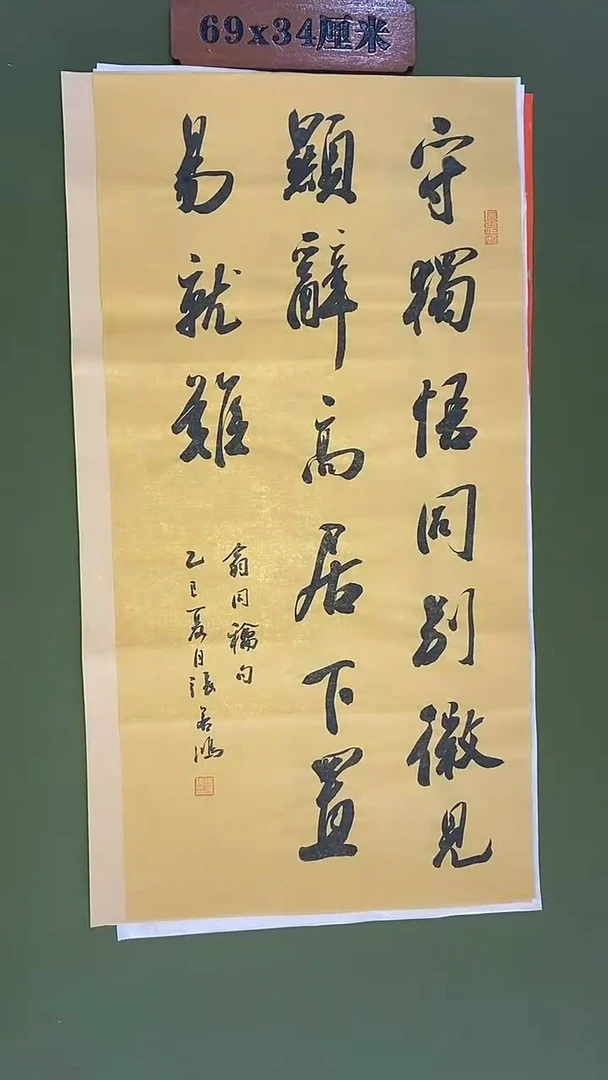 69x34厘米
守獨悟同別微見
顯辭高居下置
易就難
翁同龢句
乙巳夏月張若鴻